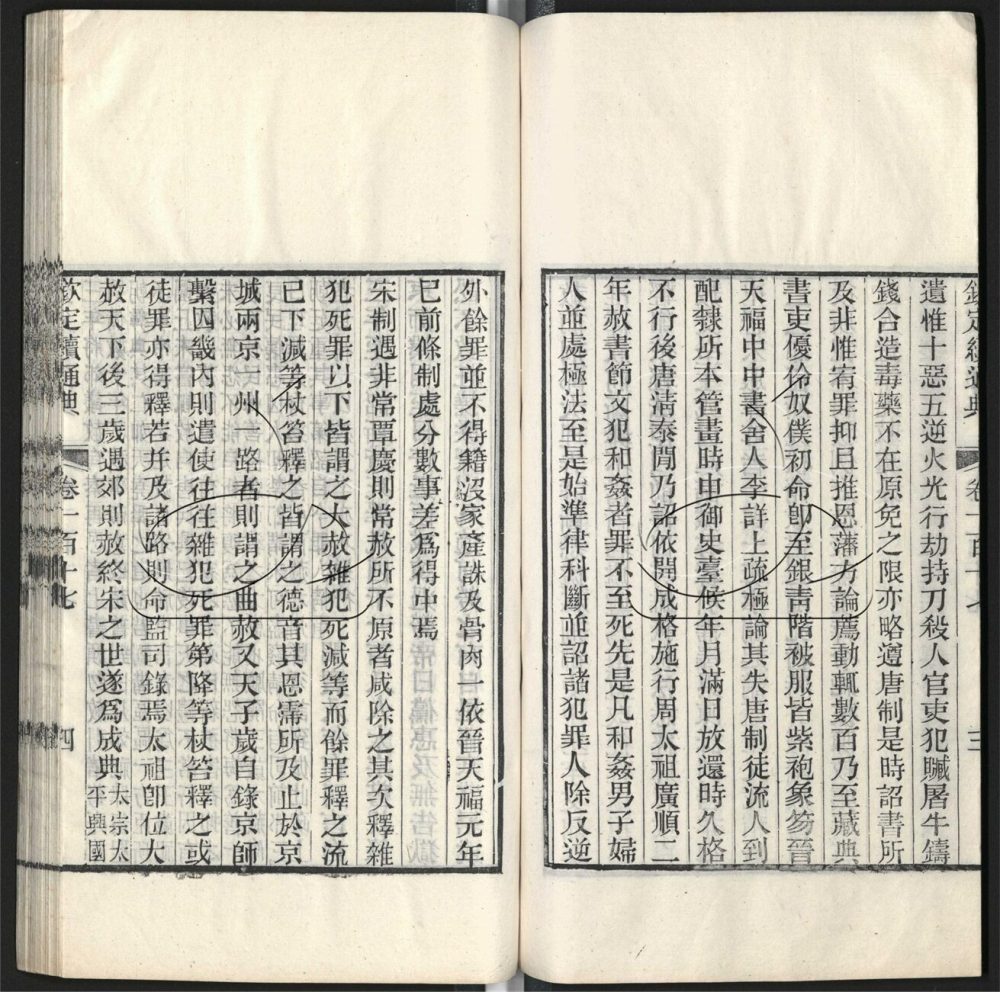 欽定續通典 卷一百十七 三
遺惟十惡五逆火光行劫持刀殺人官吏犯贓屠牛鑄
錢合造毒藥不在原免之限亦略遵唐制是時詔書所
及非惟宥罪抑且推恩藩方論薦動輒數百乃至藏典
書吏優伶奴僕初命卽至銀靑階被服皆紫袍象笏晉
天福中中書舍人李詳上疏極論其失唐制徒流人到
配隸所本管畫時申御史臺候年月滿日放還時久格
不行後唐淸泰閒乃詔依開成格施行周太祖廣順二
年赦書節文犯和姦者罪不至死先是凡和姦男子婦
人並處極法至是始準律科斷並詔諸犯罪人除反逆
外餘罪並不得籍沒家產誅及骨肉一依晉天福元年
已前條制處分數事差爲得中焉
宋制遇非常覃慶則常赦所不原者咸除之其次釋雜
犯死罪以下皆謂之大赦雜犯死減等而餘罪釋之流
已下減等杖笞釋之皆謂之德音其恩霈所及止於京
城兩京一州一路者則謂之曲赦又天子歲自錄京師
繫囚畿內則遣使往往雜犯死罪第降等杖笞釋之或
徒罪亦得釋若并及諸路則命監司錄焉太祖卽位大
赦天下後三歲遇郊則赦終宋之世遂爲成典太宗太
平興國
欽定續通典 卷一百十七 四